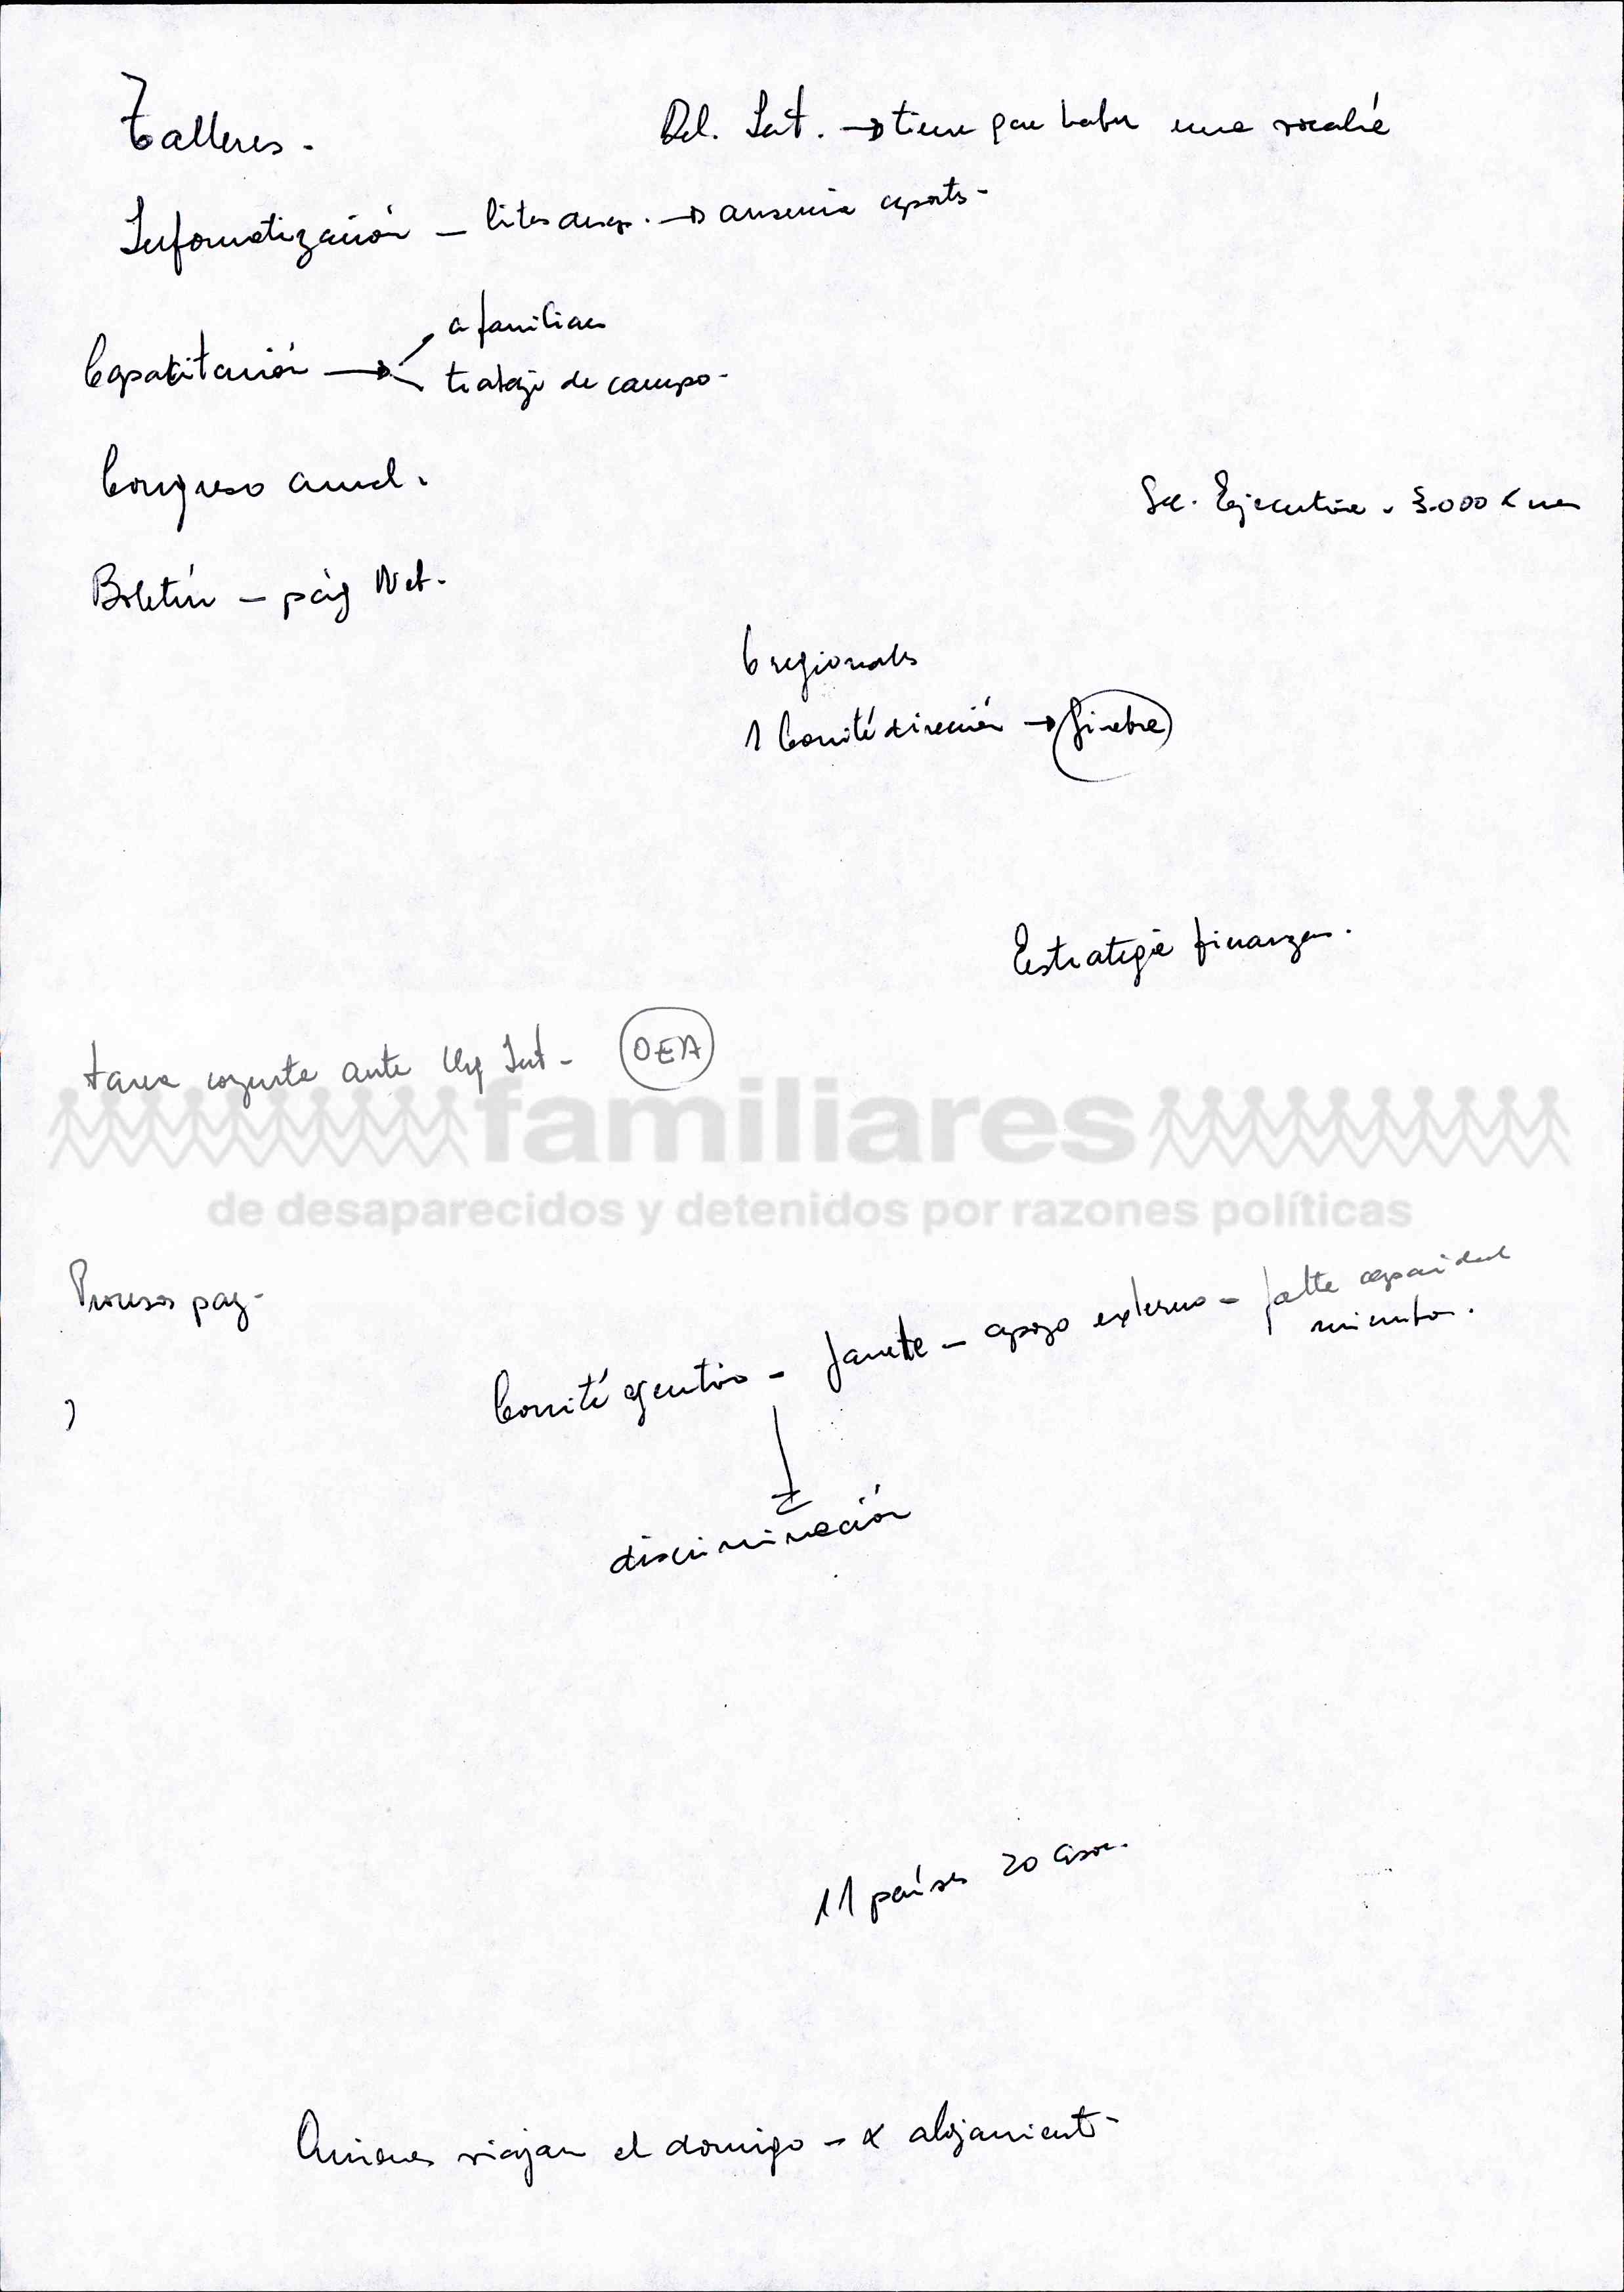 Talleres.
Rel. Int. → tiene que haber una vocalía
Informatización – listas desap. → ausencia aportes-
Capacitación → a familiares
trabajo de campo-
Congreso anual.
Sec. Ejecutiva. 3.000 x mes
Boletín – pág Net.
6 regionales
1 Comité dirección → Ginebra
Estrategia finanzas.
tarea conjunta ante Org Int- OEA
familiares
de desaparecidos y detenidos por razones políticas
Procesos paz-
Comité ejecutivo – Janette – apoyo externo – falta capacidad
miembros.
discriminación
11 países 20 asoc.
Quienes viajan el domingo – x alojamiento-